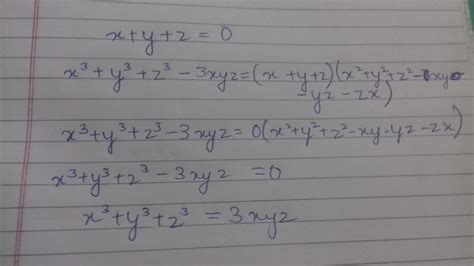 x+y+z = 0
x³+y³+z³-3xyz=(x+y+z)(x²+y²+z²-xy
-yz-zx)
x³+y³+z³-3xyz=0(x²+y²+z²-xy-yz-zx)
x³+y³+z³-3xyz =0
x³+y³+z³ =3xyz